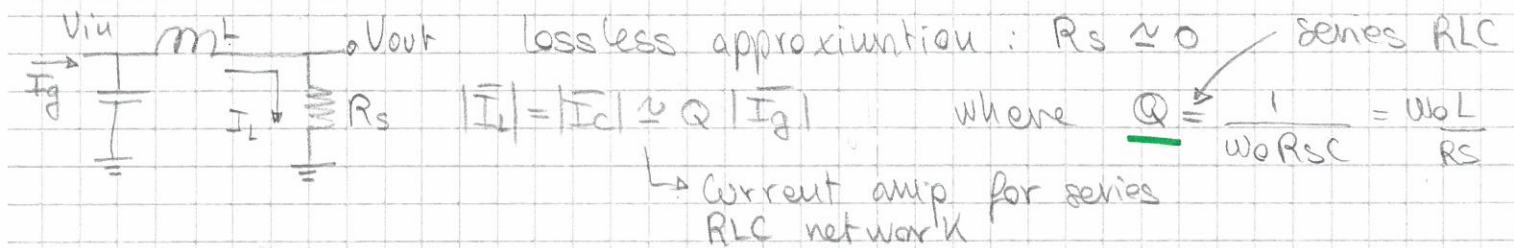 Vin L Vout lossless approximation : Rs ≃ 0 series RLC
Ig IL Rs |IL| = |Ic| ≃ Q |Ig| where Q = 1/(ω0 Rs C) = ω0 L/Rs
↳ Current amp for series
RLC network